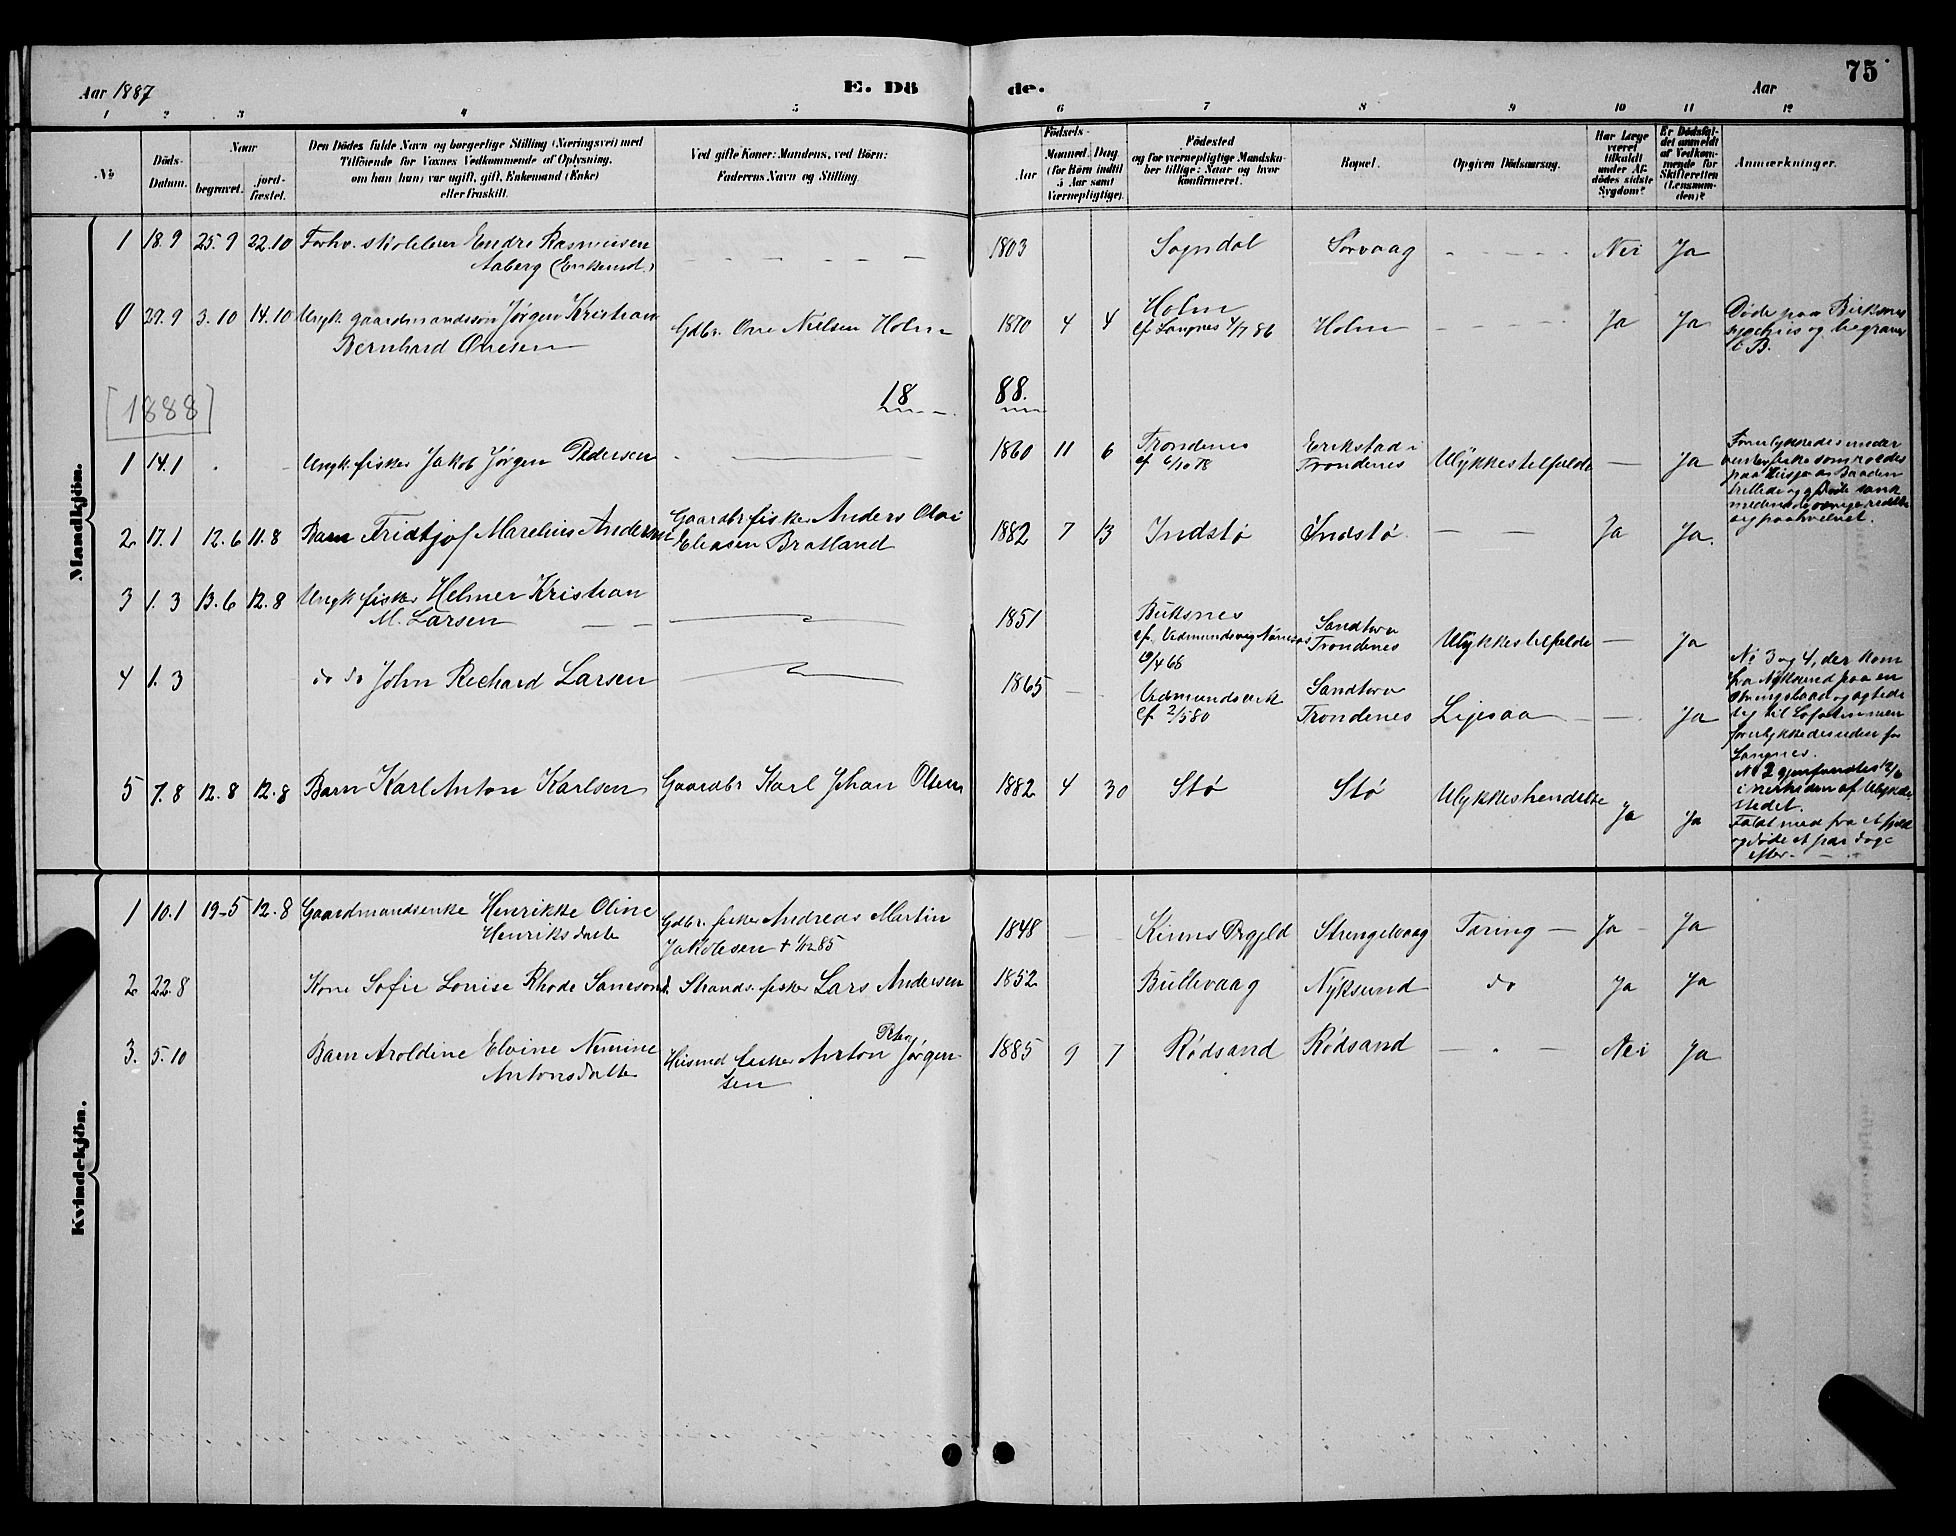 75
Aar 1887 E. Dö de. Aar
1 2 3 4 5 6 7 8 9 10 11 12
No
Döds-Datum.
Naar
begravet.
jord-fæstet.
Den Dödes fulde Navn og borgerlige Stilling (Næringsvei) med
Tilföiende for Voxnes Vedkommende af Oplysning,
om han (hun) var ugift, gift, Enkemand (Enke)
eller fraskilt.
Ved gifte Koner: Mandens, ved Börn:
Faderens Navn og Stilling.
Födsels-
Aar
Maaned. Dag
(for Börn indtil
5 Aar samt
Værnepligtige).
Födested
og for værnepligtige Mandsku-
ber tillige: Naar og hvor
konfirmeret.
Bopæl.
Opgiven Dödsaarsag.
Har Læge
været
tilkaldt
under Af-
dödes sidste
Sygdom?
Er Dödsfal-
det anmeldt
af Vedkom-
mende for
Skifteretten
(Lensman-
den)?
Anmærkninger.
Mandkjön.
1 18.9 25.9 22.10 Forhv. skolelærer Endre Rasmussen
Aaberg (Enkemd.) 1803 Sogndal Sorvaag Nei Ja
0 27.9 3.10 14.10 Ungk. gaardmandssøn Jørgen Kristian
Bernhard Onesen Gdbr. One Nielsen Holm 1870 4 4 Holm
cf Langnes 4/7 86 Holm Ja Ja Døde paa
sygehus og begravet
B.
[1888] 18 88.
1 14.1 Ungk fisker Jakob Jørgen Pedersen 1860 11 6 Trondenes
cf 6/10 78 Erikstad i
Trondenes Ulykkestilfælde — Ja Forulykkedes under
vinterfiske som holdes
paa Baaden
og sank
2 17.1 12.6 11.8 Barn Fridtjof Marelius Andersen Gaardbr fisker Anders Olai
Eliasen Bratland 1882 7 13 Indstø Indstø Ja Ja.
3 1.3 13.6 12.8 Ungk fisker Helmer Kristian
M. Larsen 1851 Buksnes
cf.
68 Sandtorv
Trondenes Ulykkestilfælde — Ja
4 1.3 do do John Richard Larsen 1865
cf 2/5 80 Sandtorv
Trondenes Ligesaa — Ja No 3 og 4, der kom
fra Nyksund paa en
og agtede
sig til Lofoten men
forulykkedes uden for
Langnes.
5 7.8 12.8 12.8 Barn Karl Anton Karlsen Gaardbr Karl Johan Olsen 1882 4 30 Stø Stø Ulykkeshendelse Ja Ja No 2 gjenfandtes 12/6
i nerheden af Ulykke
stedet.
Faldt ned fra et fjeld
og døde et par dage
efter
Kvindekjön.
1 10.1 19-5 12.8 Gaardmandsenke Henrikke Oline
Henriksdatte Gdbr. fisker Andreas Martin
Jakobsen + 1/12 85 1848 Kinns Prgjeld Strengelvaag Tæring — Ja Ja
2 22.8 Kone Sofie Louise Rhode Samsond. Strands. fisker Lars Andersen 1852 Nyksund do Ja Ja
3. 5.10 Barn Aroldine Elvine Nemine
Antonsdatte Husmd fisker Anton Peter Jørgen
sen 1885 9 7 Rødsand Rødsand Nei Ja